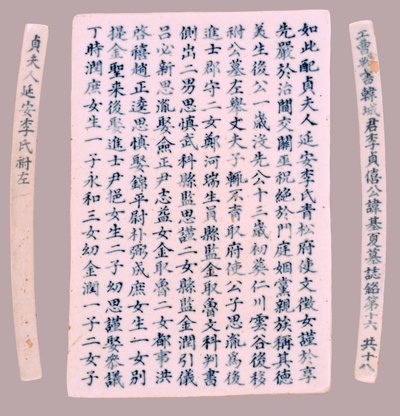 工曹判書韓城君李貞僖公諱基夏墓誌銘第十六 共十八
如此配貞夫人延安李氏靑松府使文徵女謹於享
先嚴於治閫交關巫祝絶於門庭姻黨親族稱其德
美生後公一歲沒先公十三歲初葬仁川雲谷後移
祔公墓左擧丈夫子輒不育取府使公子思胤爲後
進士郡守二女鄭河瑞生員縣監金取魯文科判書
側出二男思愼武科縣監思謹二女縣監金潤引儀
呂必新思胤娶僉正尹志益女金取魯一女都事洪
啓禧趙正逵思愼娶錦平尉朴弼成庶女生一女別
提金聖來後娶進士尹挹女生二子幼思謹娶參議
丁時潤庶女生一子永和三女幼金潤一子二女子
貞夫人延安李氏祔左